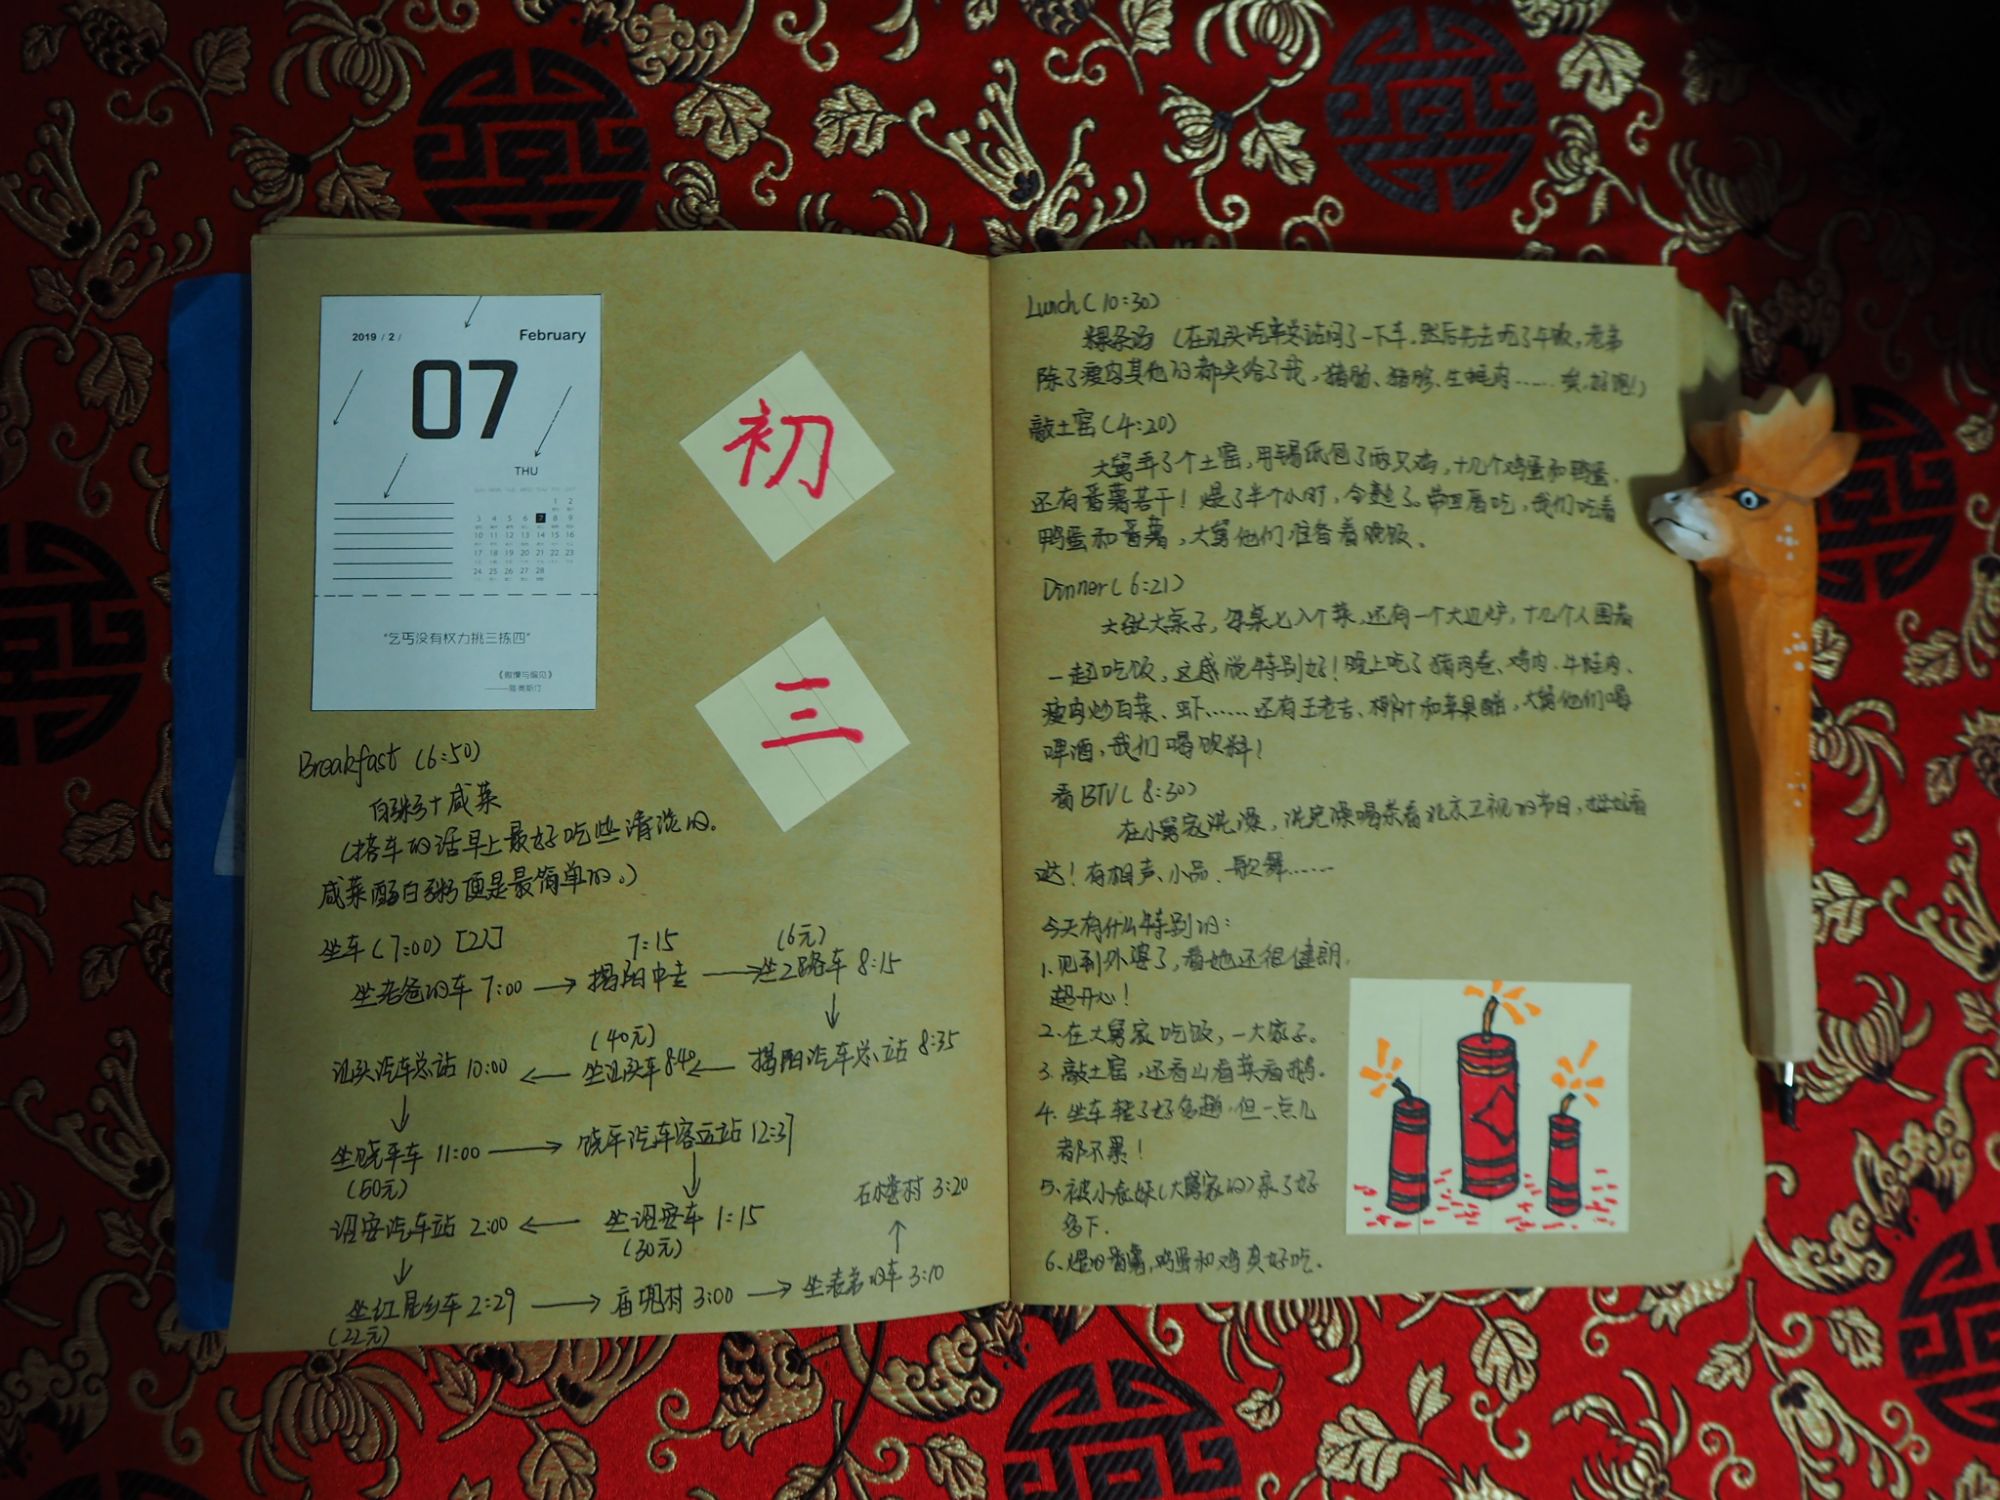 2019 / 2 /
February
07
THU
SUN MON TUE WED THU FRI SAT
1 2
3 4 5 6 7 8 9
10 11 12 13 14 15 16
17 18 19 20 21 22 23
24 25 26 27 28
“乞丐没有权力挑三拣四”
《傲慢与偏见》
——简·奥斯汀
初
三
Breakfast (6:50)
白粥+咸菜
(搭车的话早上最好吃些清淡的。
咸菜配白粥便是最简单的。)
坐车(7:00)
7:15
(6元)
坐老爸的车 7:00 → 揭阳中走 → 坐2路车 8:15
(40元)
汕头汽车总站 10:00 ← 坐汕头车 8:40 ← 揭阳汽车总站 8:35
坐饶平车 11:00 → 饶平汽车客运站 12:37
(50元)
石楼村 3:20
诏安汽车站 2:00 ← 坐诏安车 1:15
(30元)
坐红星乡车 2:29 → 庙兜村 3:00 → 坐表弟的车 3:10
(22元)
Lunch(10:30)
粿条汤 (在汕头汽车总站问了一下车,然后先去吃了午饭,老弟
除了瘦肉其他的都夹给了我,猪肠、猪胗、生蚝肉……唉,好吧!)
敲土窑(4:20)
大舅弄了个土窑,用锡纸包了两只鸡,十几个鸡蛋和鸭蛋,
还有番薯若干!煨了半个小时,我们吃着
鸭蛋和番薯,大舅他们准备着晚饭。
Dinner(6:21)
大张大桌子,每桌七八个菜,还有一个大边炉,十几个人围着
一起吃饭,这感觉特别好!晚上吃了猪肉卷、鸡肉、牛蛙肉、
瘦肉炒白菜、虾……还有王老吉、椰汁和苹果醋,大舅他们喝
啤酒,我们喝饮料!
看BTV(8:30)
在小舅家洗澡,洗完澡喝茶看北京卫视的节目,挺好看
哒!有相声、小品、歌舞……
今天有什么特别的:
1.见到外婆了,看她还很健朗,
超开心!
2.在大舅家吃饭,一大家子。
3.敲土窑,还看山看菜看鹅。
4.坐车转了好多趟,但一点儿
都不累!
5.被小表妹(大舅家的)亲了好
多下.
6.煨的番薯,鸡蛋和鸡真好吃.